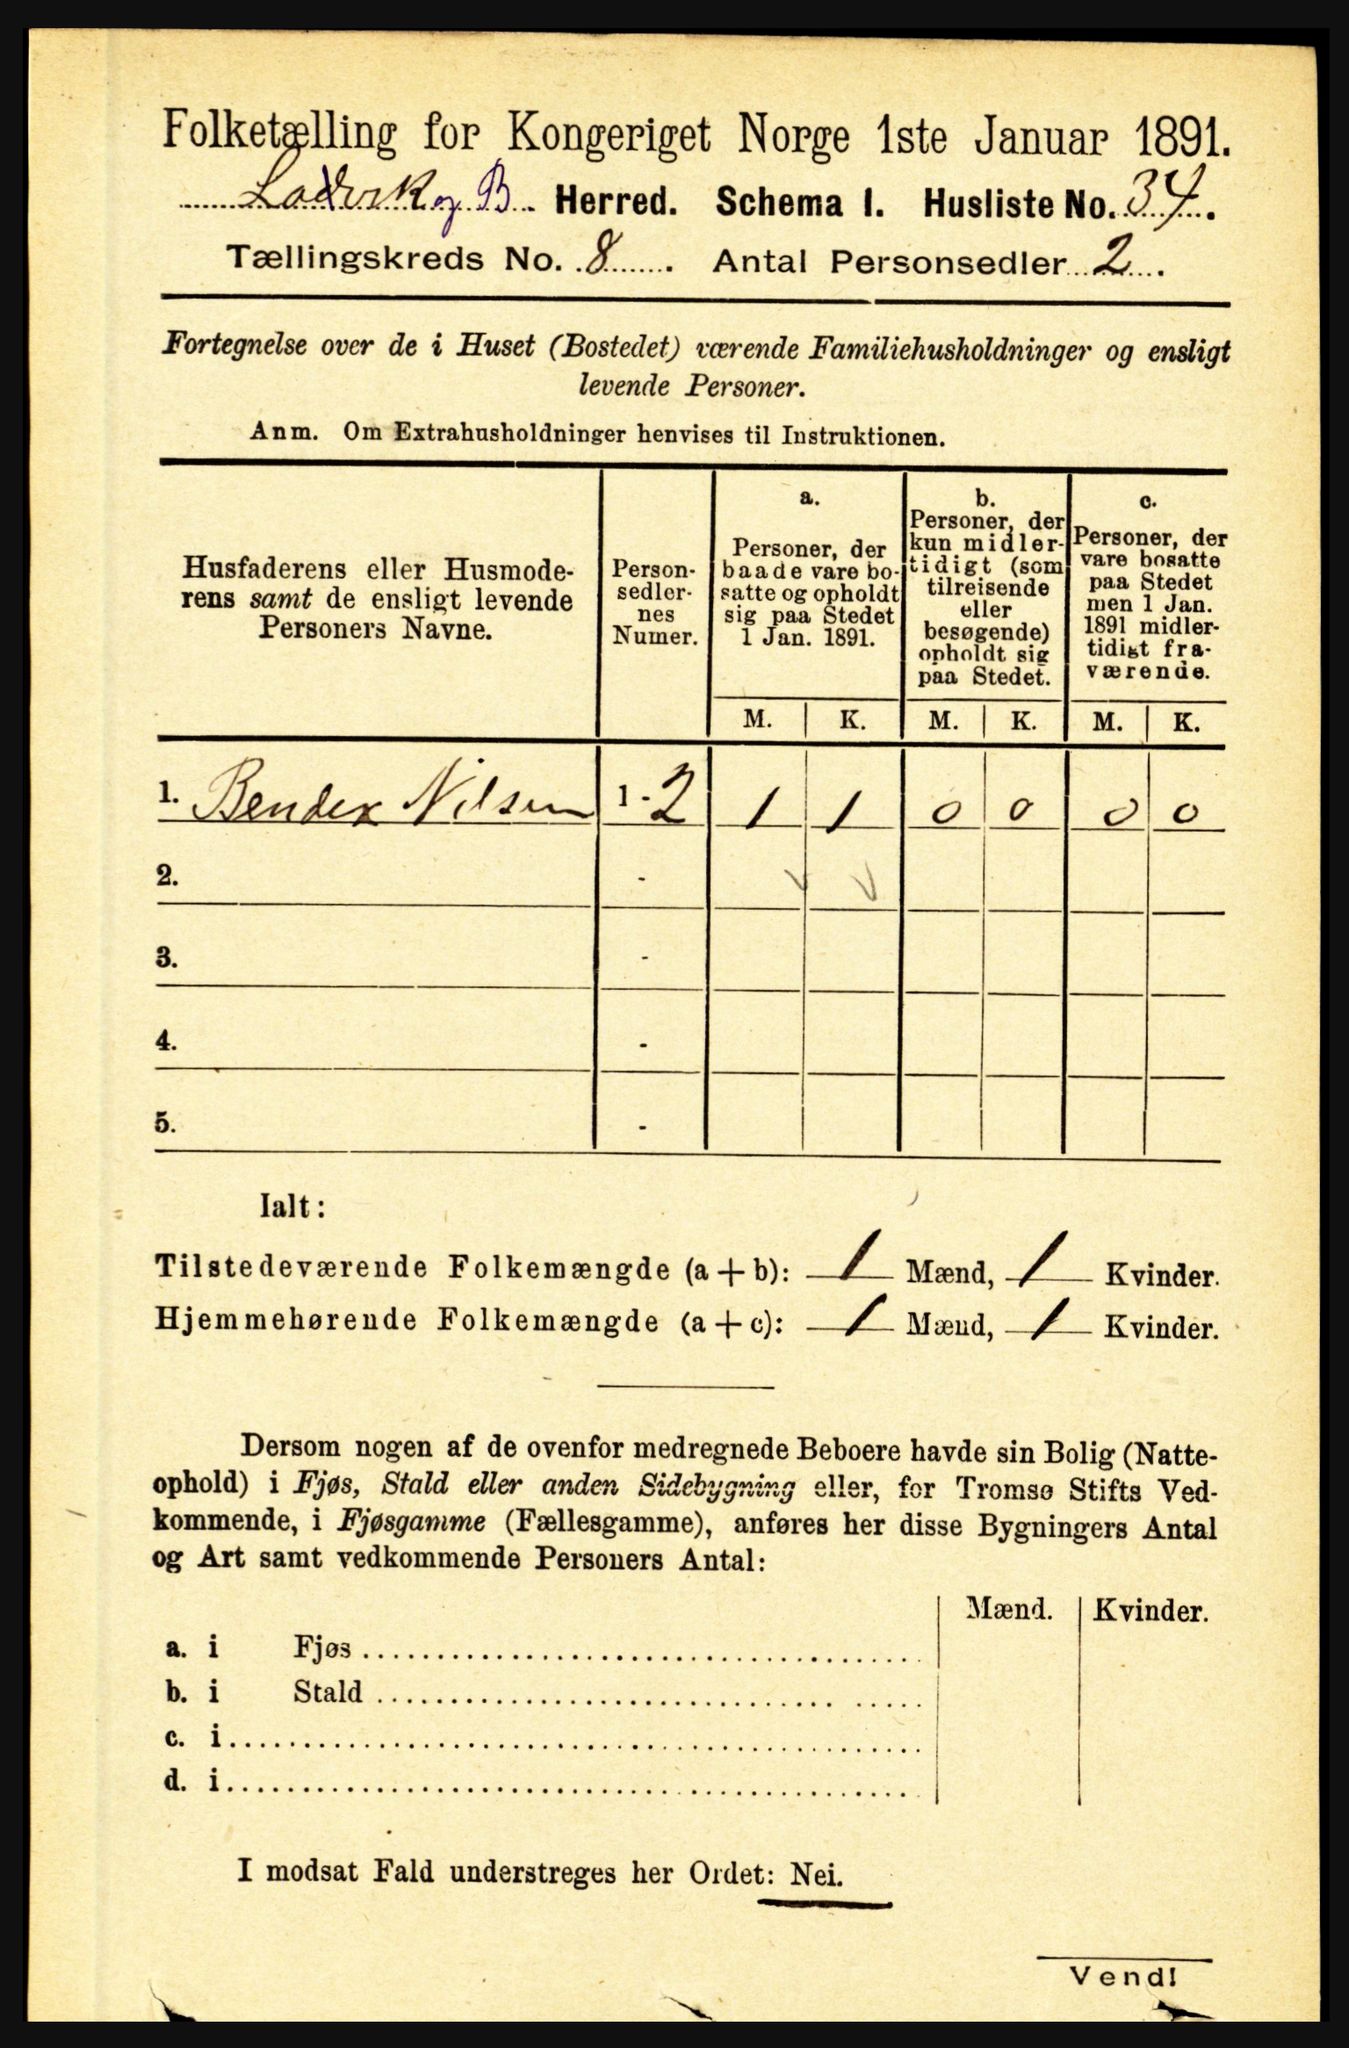 Folketælling for Kongeriget Norge 1ste Januar 1891.
Ladvik og B. Herred. Schema I. Husliste No. 34.
Tællingskreds No. 8. Antal Personsedler 2.
Fortegnelse over de i Huset (Bostedet) værende Familiehusholdninger og ensligt
levende Personer.
Anm. Om Extrahusholdninger henvises til Instruktionen.
Husfaderens eller Husmode-
rens samt de ensligt levende
Personers Navne.
Person-
sedler-
nes
Numer.
a.
Personer, der
baade vare bo-
satte og opholdt
sig paa Stedet
1 Jan. 1891.
b.
Personer, der
kun midler-
tidigt (som
tilreisende
eller
besøgende)
opholdt sig
paa Stedet.
c.
Personer, der
vare bosatte
paa Stedet
men 1 Jan.
1891 midler-
tidigt fra-
værende.
M. K. M. K. M. K.
1. Bendix Nilsen 1 - 2 1 1 0 0 0 0
2. -
3. -
4. -
5. -
Ialt:
Tilstedeværende Folkemængde (a + b): 1 Mænd, 1 Kvinder.
Hjemmehørende Folkemængde (a + c): 1 Mænd, 1 Kvinder.
Dersom nogen af de ovenfor medregnede Beboere havde sin Bolig (Natte-
ophold) i Fjøs, Stald eller anden Sidebygning eller, for Tromsø Stifts Ved-
kommende, i Fjøsgamme (Fællesgamme), anføres her disse Bygningers Antal
og Art samt vedkommende Personers Antal:
Mænd. Kvinder.
a. i Fjøs
b. i Stald
c. i
d. i
I modsat Fald understreges her Ordet: Nei.
Vend!